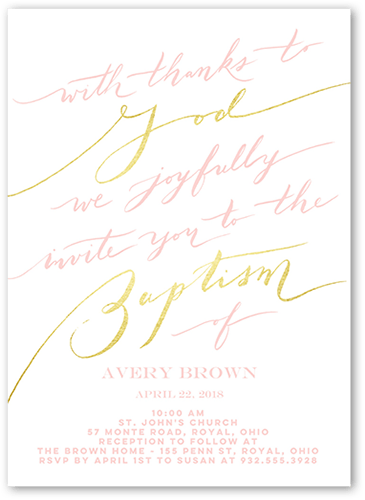 with thanks to
God
we joyfully
invite you to the
Baptism
of
AVERY BROWN
APRIL 22, 2018
10:00 AM
ST. JOHN'S CHURCH
57 MONTE ROAD, ROYAL, OHIO
RECEPTION TO FOLLOW AT
THE BROWN HOME - 155 PENN ST, ROYAL, OHIO
RSVP BY APRIL 1ST TO SUSAN AT 932.555.3928